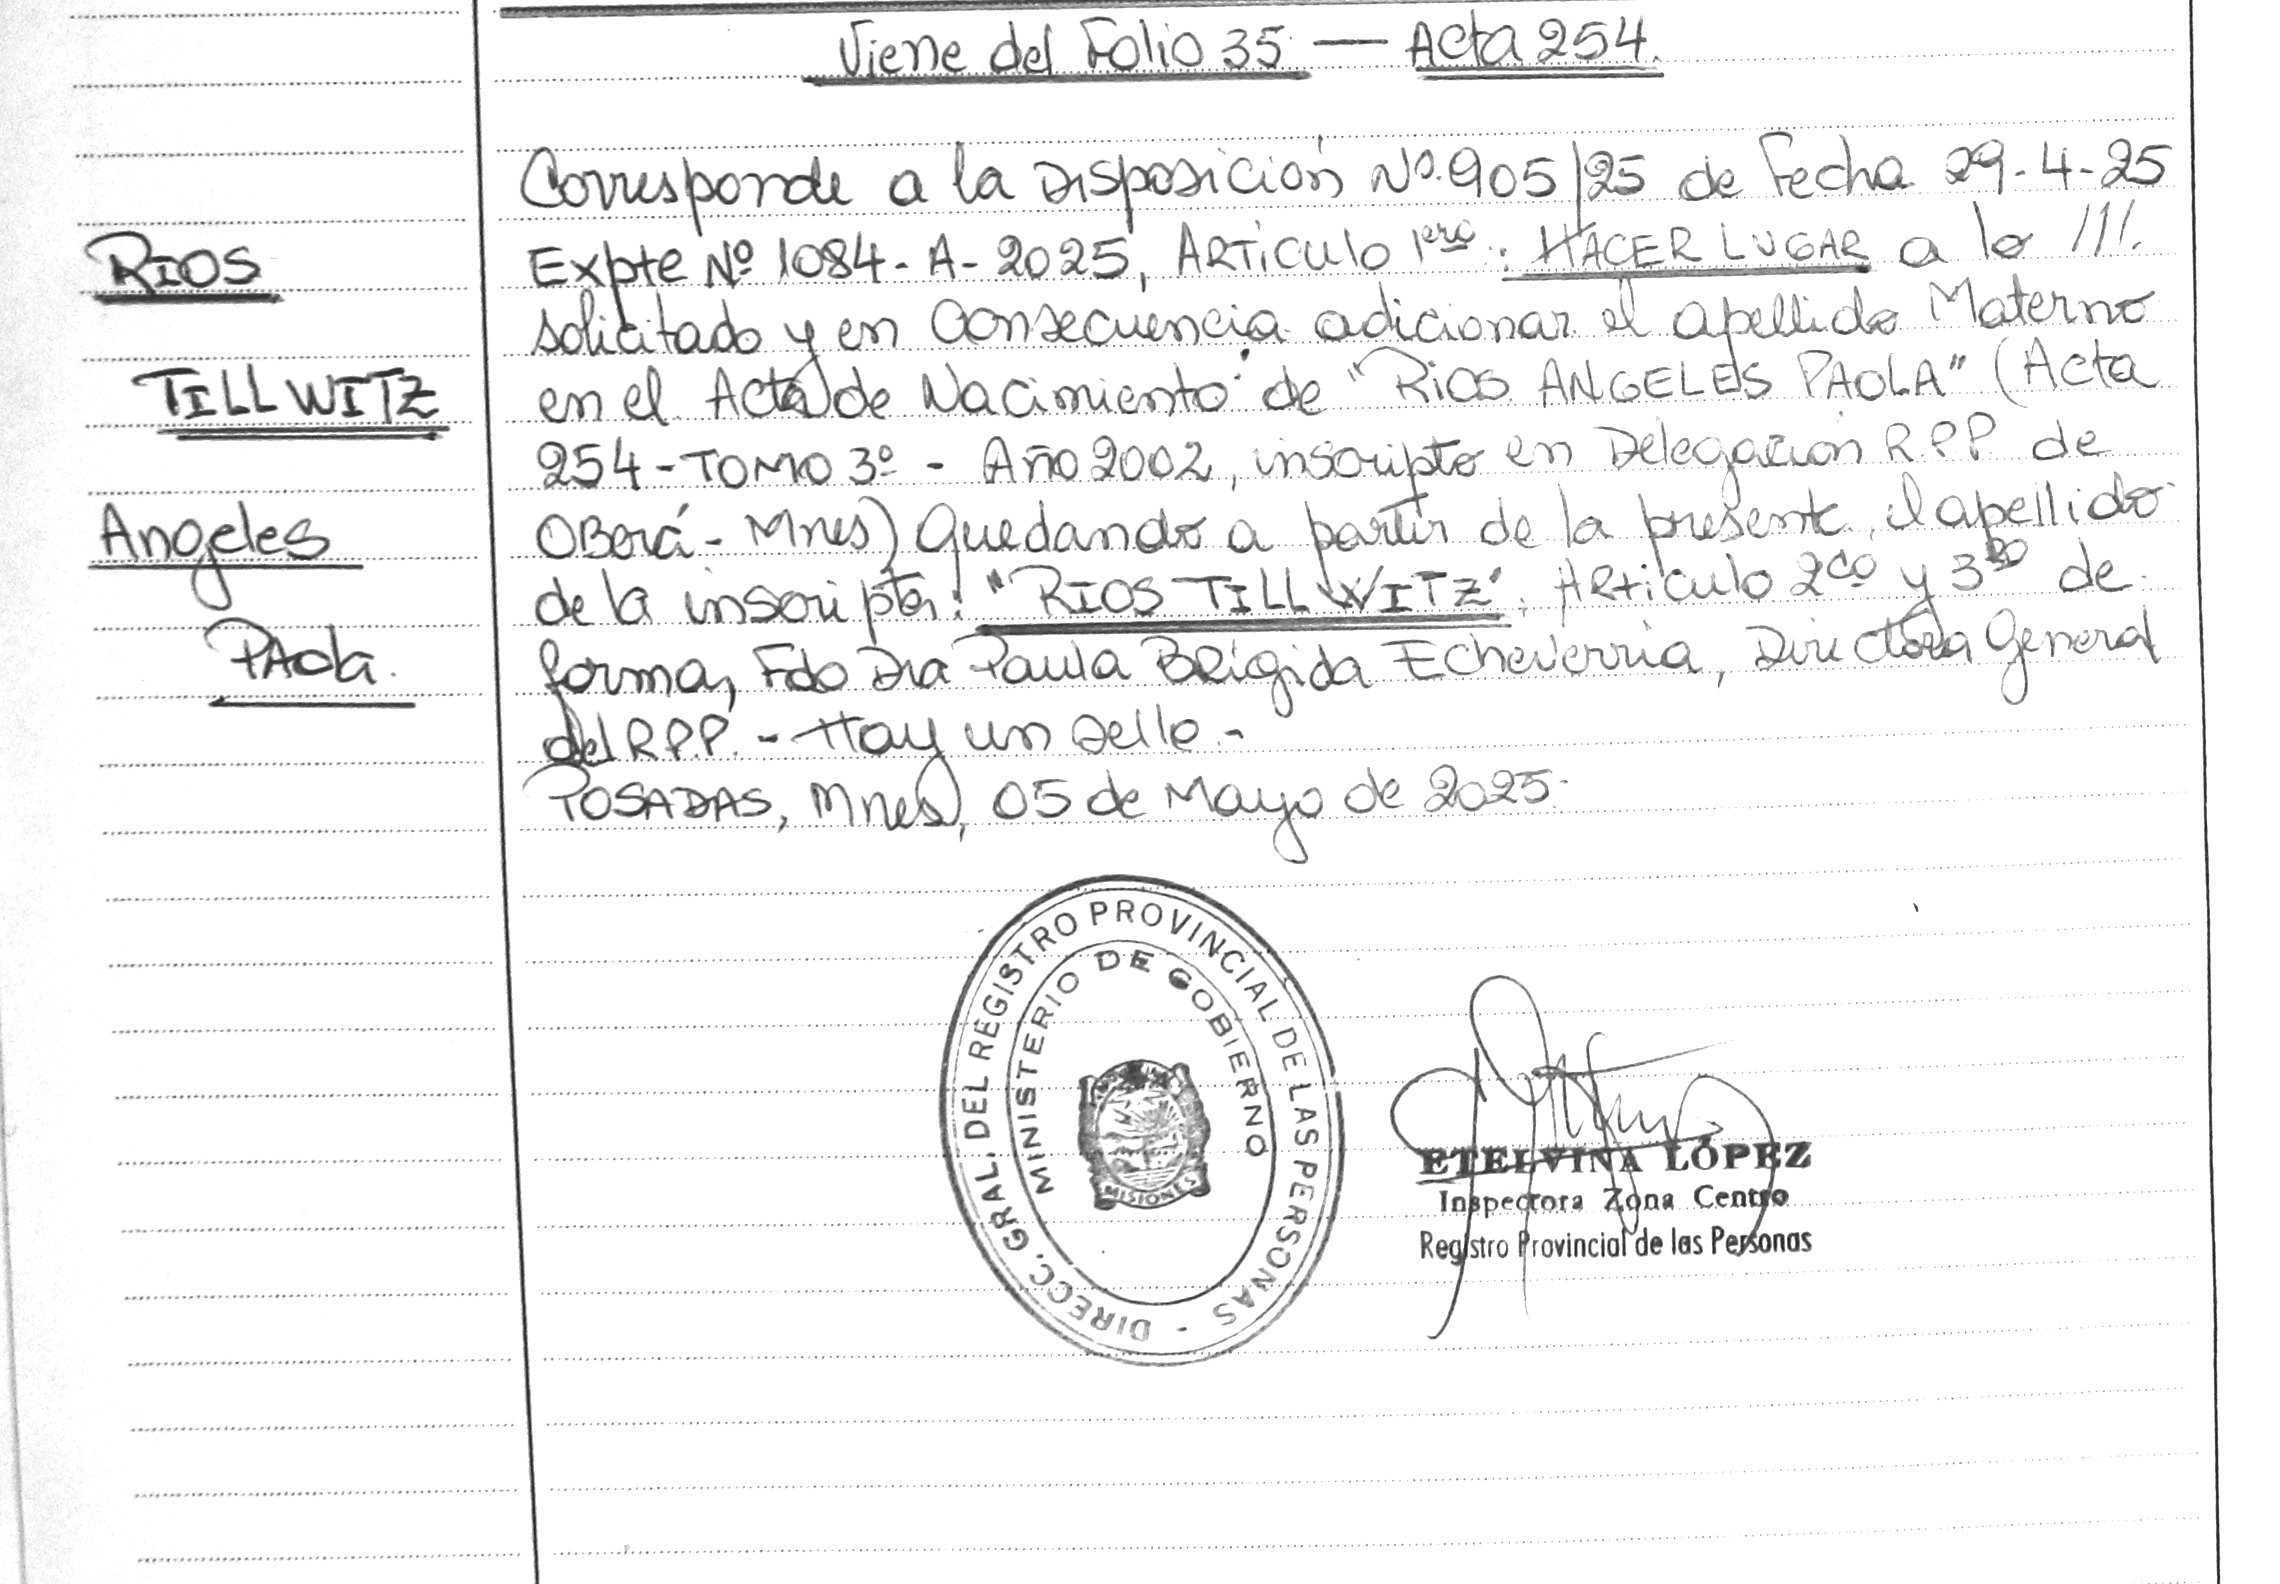 Viene del Folio 35 — Acta 254.
Corresponde a la Disposición Nº 905/25 de Fecha 29-4-25
Expte Nº 1084-A-2025, ARTICULO 1ero: HACER LUGAR a lo ///.
solicitado y en Consecuencia adicionar el apellido Materno
en el Acta de Nacimiento de "RIOS ANGELES PAOLA" (Acta
254-TOMO 3º - Año 2002, inscripto en Delegación R.P.P de
OBerá - Mnes) Quedando a partir de la presente, el apellido
de la inscripta: "RIOS TILLWITZ". ARticulo 2do y 3ro de
forma, Fdo Dra Paula BRigida Echeverria, Directora General
del R.P.P. - Hay un sello.-
POSADAS, Mnes, 05 de Mayo de 2025.
RIOS
TILLWITZ
Angeles
PAola.
DIRECC. GRAL. DEL REGISTRO PROVINCIAL DE LAS PERSONAS -
MINISTERIO DE GOBIERNO
MISIONES
ETELVINA LÓPEZ
Inspectora Zona Centro
Registro Provincial de las Personas